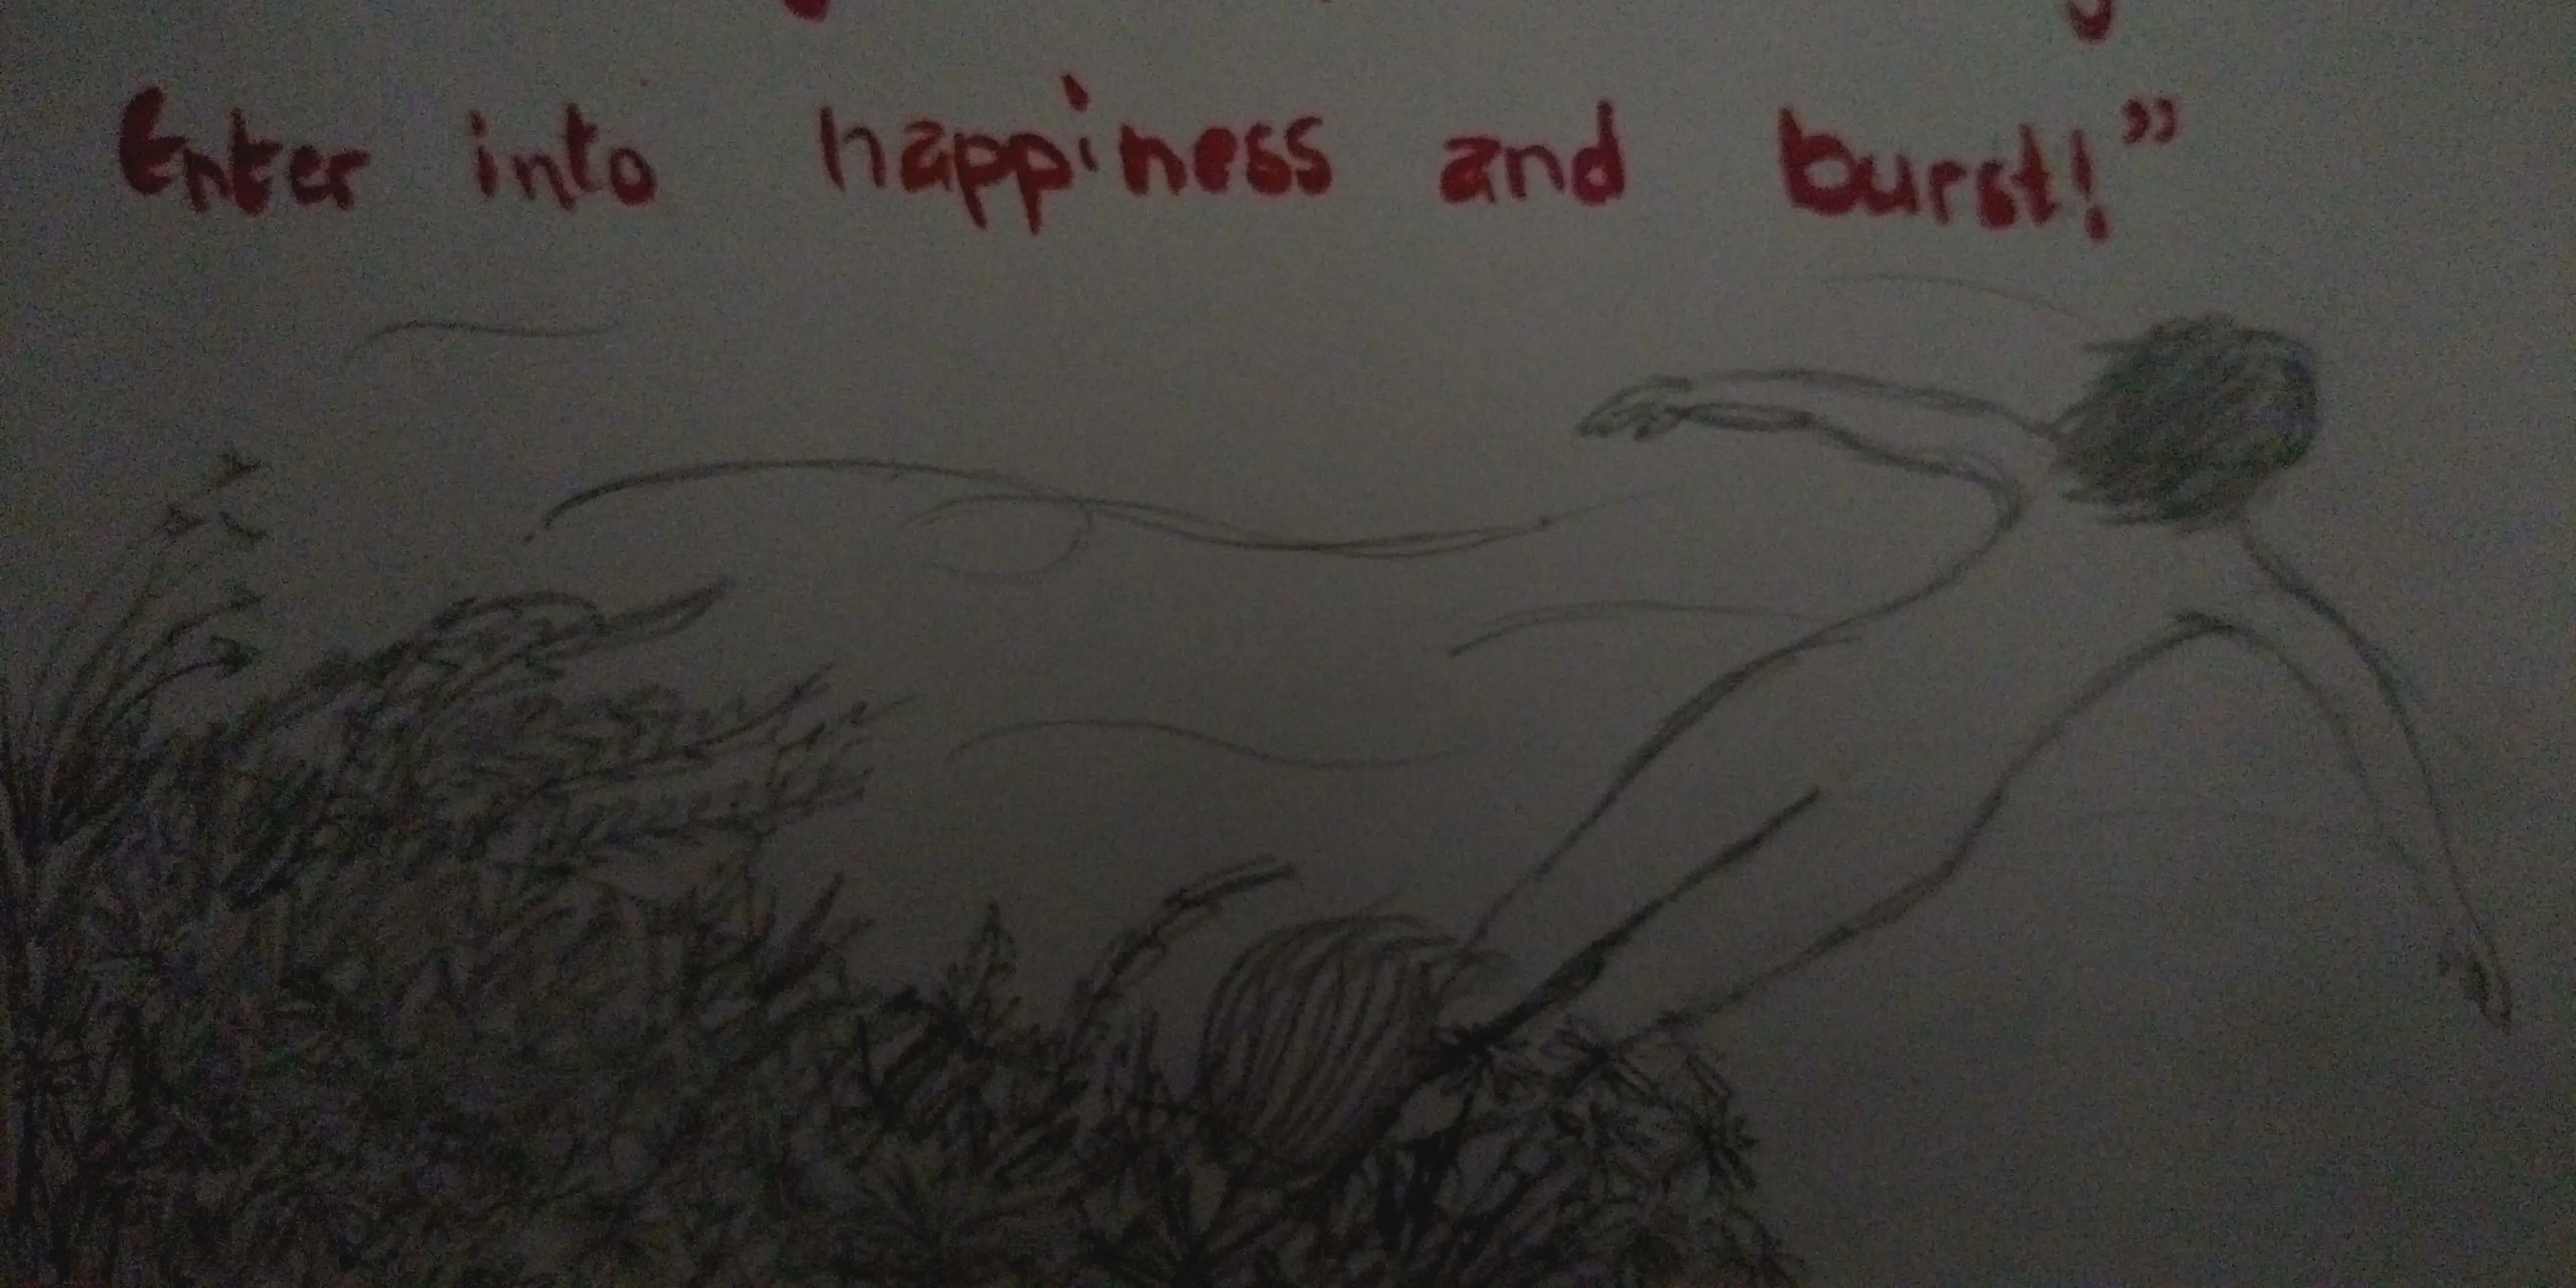 Enter into happiness and burst!”